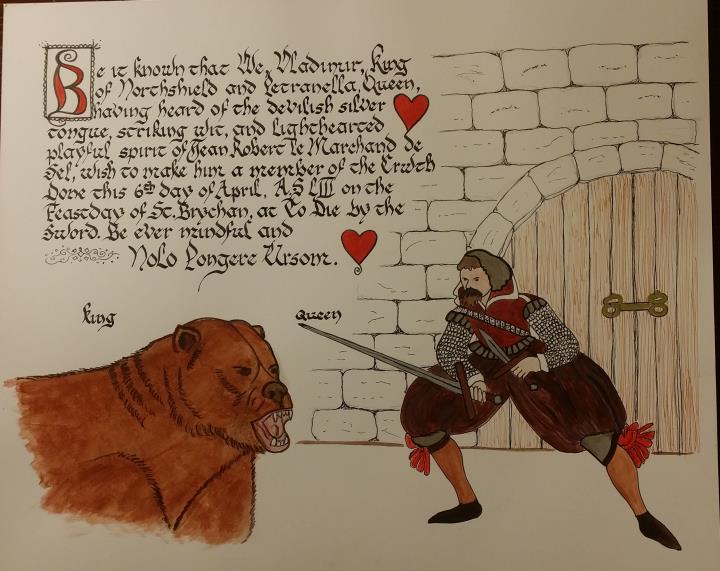 Be it known that We, Vladimir, King
of Northshield and Petranella, Queen,
having heard of the devilish silver
tongue, striking wit, and lighthearted
playful spirit of Jean Robert le Marchand de
Sel, wish to make him a member of the Crwth
Done this 6th day of April, A.S LIII on the
Feastday of St. Brychan, at To Die by the
Sword. Be ever mindful and
Nolo Pongere Ursom.
King
Queen